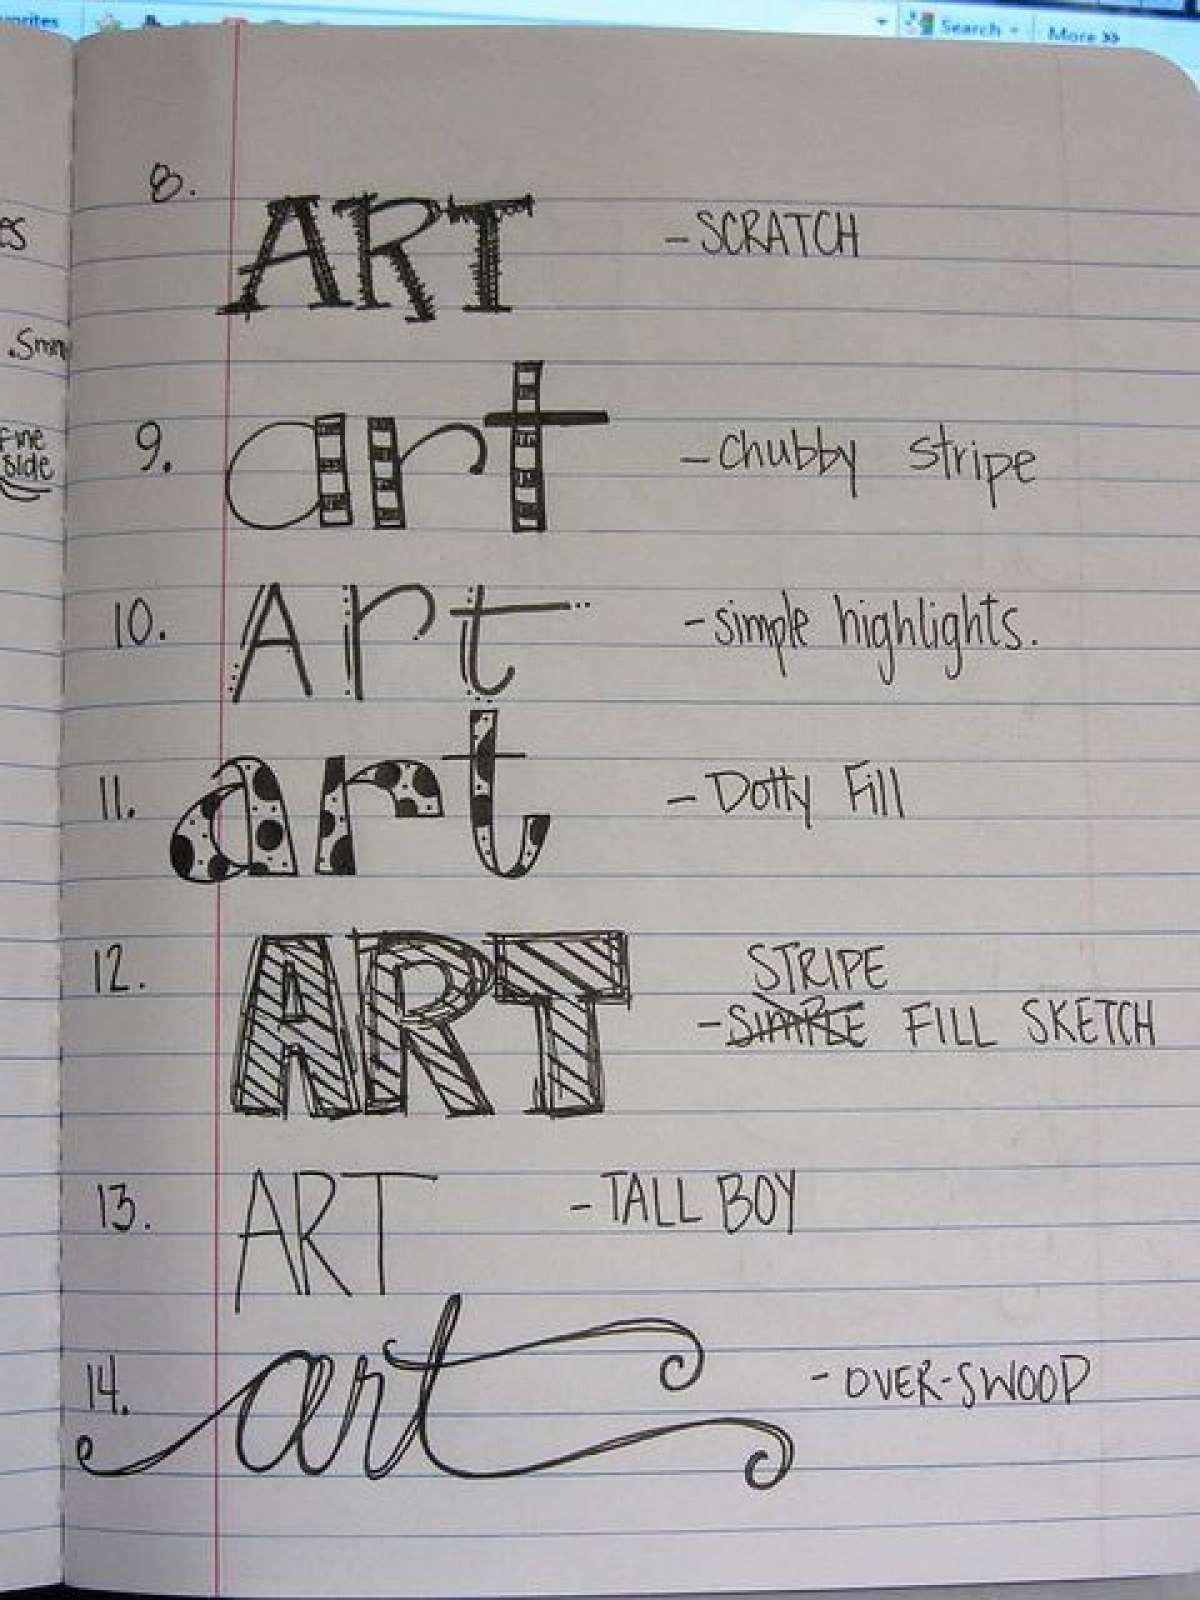 Search
More >>
8. ART - SCRATCH
9. art - chubby stripe
Fine
side
10. Art - simple highlights.
11. art - Dotty Fill
12. ART STRIPE
- SIMPLE FILL SKETCH
13. ART - TALL BOY
14. art - OVER-SWOOP